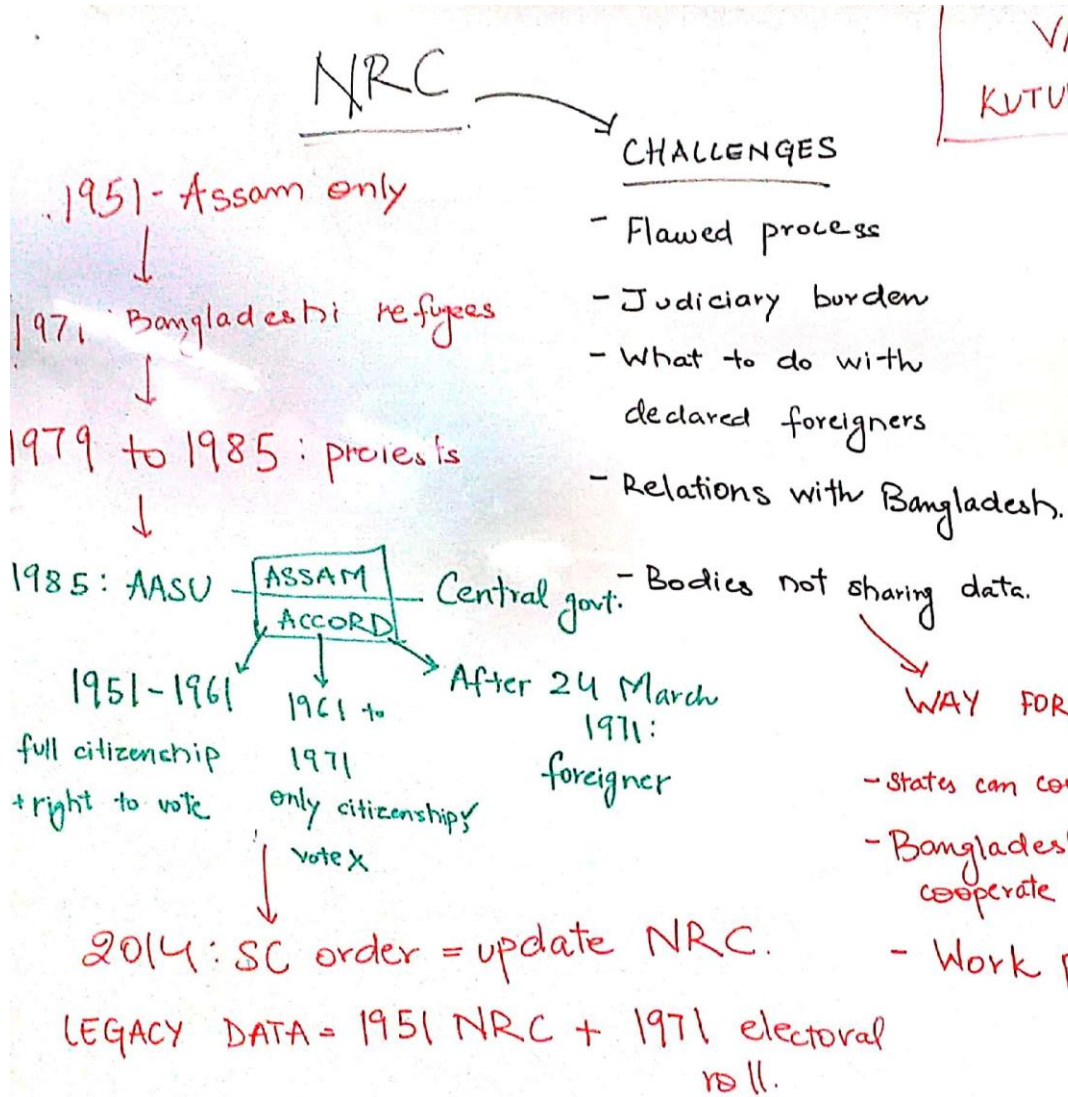 NRC
.1951 - Assam only
1971 Bangladeshi refugees
1979 to 1985 : protests
1985 : AASU - ASSAM ACCORD - Central govt.
1951-1961
full citizenship
+ right to vote
1961 to
1971
only citizenship,
vote X
After 24 March
1971 :
foreigner
2014 : SC order = update NRC.
LEGACY DATA = 1951 NRC + 1971 electoral
roll.
CHALLENGES
- Flawed process
- Judiciary burden
- What to do with
declared foreigners
- Relations with Bangladesh.
- Bodies not sharing data.
WAY FOR
- States can co
- Banglades
cooperate
- Work
KUTU